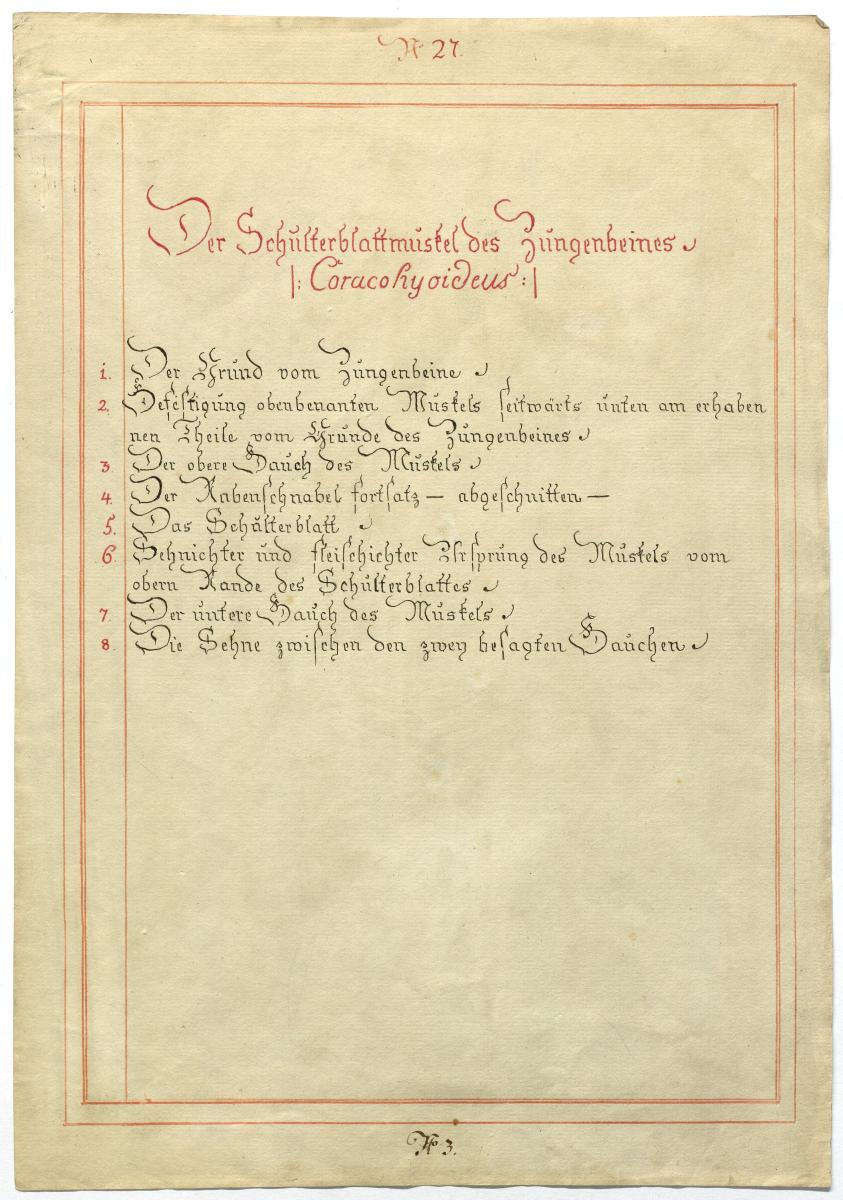 N 27.
Der Schulterblattmuskel des Zungenbeines
|: Coracohyoideus :|
1. Der Grund vom Zungenbeine
2. Befestigung obenbenanten Muskels seitwärts unten am erhaben
nen Theile vom Grunde des Zungenbeines
3. Der obere Bauch des Muskels
4. Der Rabenschnabel fortsatz – abgeschnitten –
5. Das Schulterblatt
6. Sehnichter und fleischichter Ursprung des Muskels vom
obern Rande des Schulterblattes
7. Der untere Bauch des Muskels
8. Die Sehne zwischen den zwey besagten Bauchen
No 3.